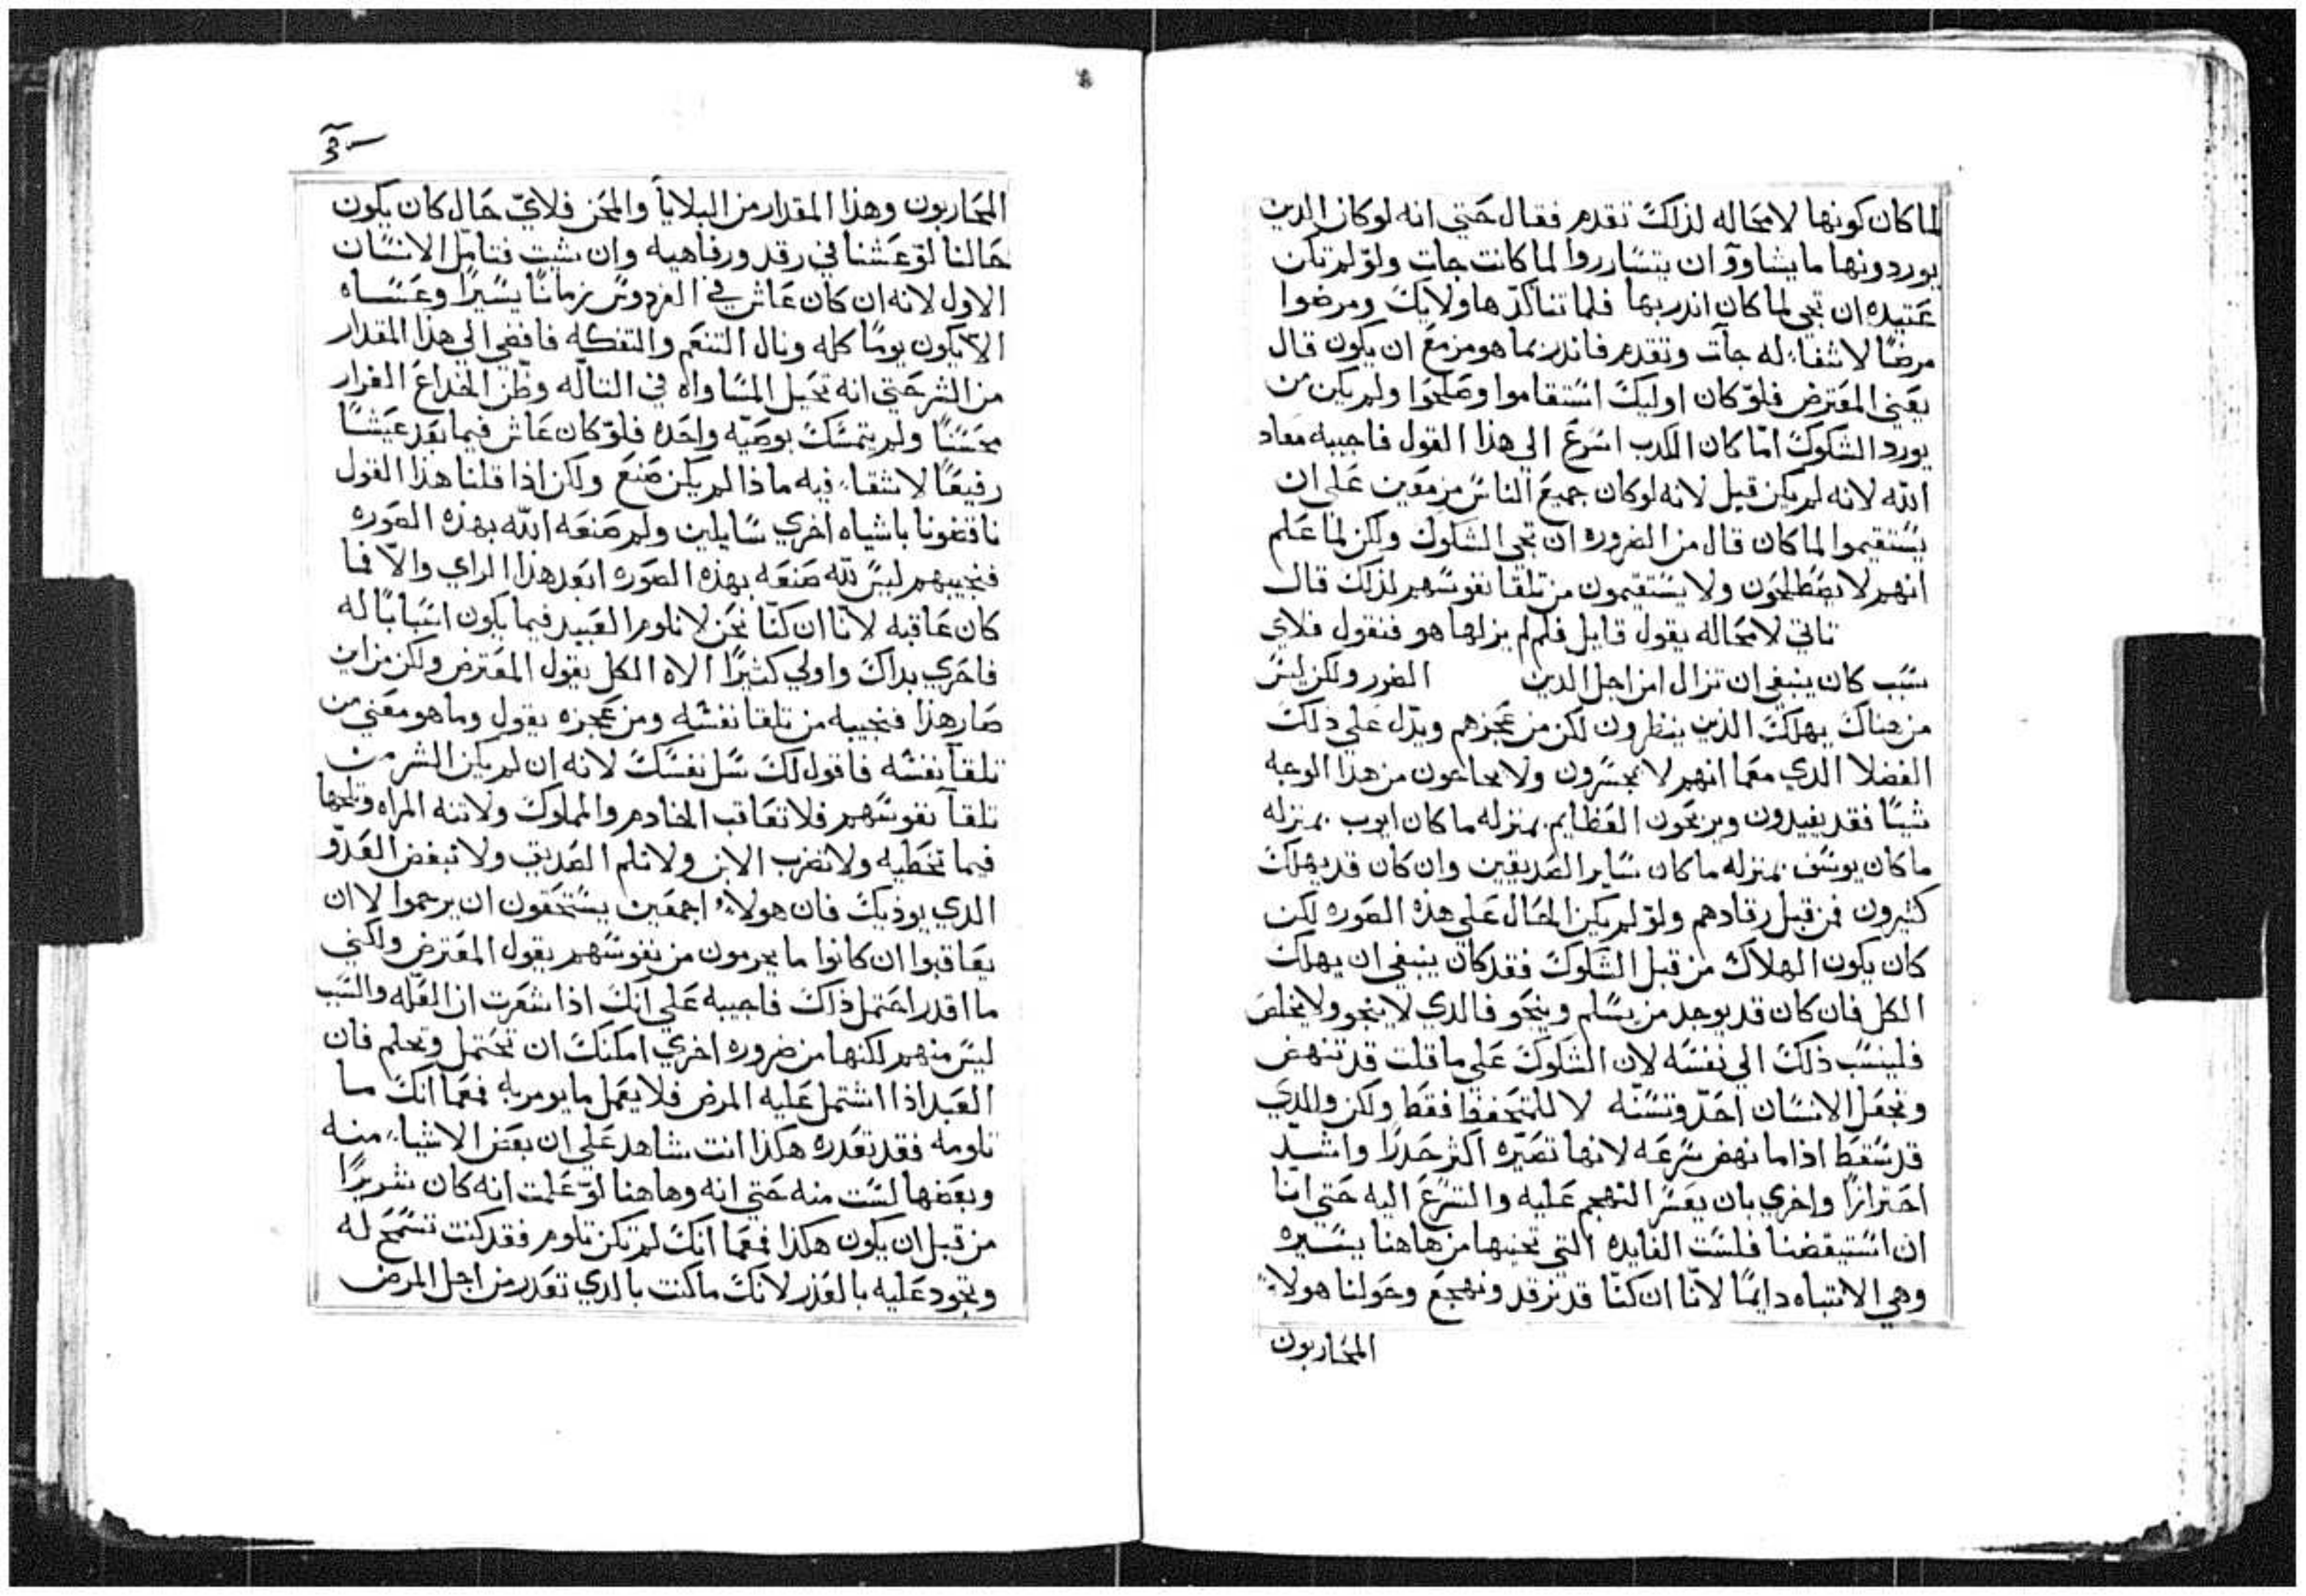 لما كان كونها لا محاله لذلك تقدم فقال حتي انه لو كان الدين
يوردونها ما يشاوو ان يتشارروا لما كانت جات ولو لم تكن
عتيده ان تجي لما كان اندر بها فلما تناكد هاولايك ومرضوا
مرضًا لا شفاء له جآت وتقدم فاندر بما هو مزمع ان يكون قال
يعني المعترض فلو كان اوليك استقاموا وصلحوا ولم يكن من
يورد الشكوك اما كان الكدب اسرع الي هذا القول فاجيبه معاد
الله لانه لم يكن قيل لانه لو كان جميع الناس مزمعين علي ان
يستقيموا لما كان قال من الضروره ان تجي الشكوك ولكن لما علم
انهم لا يصطلحون ولا يستقيمون من تلقا نفوسهم لذلك قال
تاتي لا محاله يقول قايل فلم لم يزلها هو فنقول فلاي
سبب كان ينبغي ان تزال امن اجل الدين الضرر ولكن ليس
من هناك يهلك الذين ينظرون لكن من عجزهم ويدل علي ذلك
الفضلا الدي معما انهم لا يخسرون ولا من هذا الوجه
شيئا فقد يفيدون ويربحون العظايم بمنزله ما كان ايوب بمنزله
ما كان يوسف بمنزله ما كان ساير الصديقين وان كان قد يهلك
كثيرون فمن قبل رقادهم ولو لم يكن الحال علي هذه الصوره لكن
كان يكون الهلاك من قبل الشكوك فقد كان ينبغي ان يهلك
الكل فان كان قد يوجد من يسلم وينجو فالدي لا ينجو ولا يخلص
فلينسب ذلك الي نفسه لان الشكوك علي ما قلت قد تنهض
وتجعل الانسان احد وتسنه لا للمتحفظ فقط ولكن والدي
قد سقط اذا ما نهض سرعه لانها تصيره اكثر حدرًا واشد
احترازًا واخري بان يعسر التهجم عليه والتسرع اليه حتي اننا
ان استيقضنا فلست الفايده التي نجنيها من هاهنا يسيره
وهي الانتباه دايمًا لانّا ان كنّا قد نرقد ونهجع وحولنا هولاء
المحاربون
المحاربون وهذا المقدار من البلايا والمحن فلاي حال كان يكون
حالنا لو عشنا في رقد ورفاهيه وان شيت فتامل الانسان
الاول لانه ان كان عاش في الفردوس زمانًا يسيرًا وعساه
الا يكون يومًا كله ونال التنعم والتفكه فافضي الي هذا المقدار
من الشر حتي انه تخيل المساواه في التاله وظن الخداع الغرار
محسنًا ولم يتمسك بوصيه واحده فلو كان عاش فيما بعد عيشًا
رفيعًا لا شقاء فيه ماذا لم يكن صنع ولكن اذا قلنا هذا القول
ناقضونا باشياه اخري سايلين ولم صنعه الله بهذه الصوره
فنجيبهم ليس لله صنعه بهذه الصوره ابعد هذا الراي والا فما
كان عاقبه لانا ان كنّا نحن لا نلوم العبيد فيما يكون اسبابًا له
فاحري بداك واولي كثيرًا الاه الكل يقول المعترض ولكن من اين
صار هذا فنجيبه من تلقا نفسه ومن عجزه يقول وما هو معني من
تلقآ نفسه فاقول لك سل نفسك لانه ان لم يكن الشر من
تلقآ نفوسهم فلا تعاقب الخادم والمملوك ولا تنه المراه
فيما تخطيه ولا تضرب الابن ولا تلم الصديق ولا تبغض العدو
الدي يوذيك فان هولاء اجمعين يستحقون ان يرحموا لا ان
يعاقبوا ان كانوا ما يجرمون من نفوسهم يقول المعترض ولكني
ما اقدر احتمل ذاك فاجيبه علي انك اذا شعرت ان العله والسبب
ليس منهم لكنها من ضروره اخري امكنك ان تحتمل وتحلم فان
العبد اذا اشتمل عليه المرض فلا يعمل ما يومر به فمعما انك ما
تلومه فقد تعدره هكذا انت شاهد علي ان بعض الاشياء منه
وبعضها لست منه حتي انه وهاهنا لو علمت انه كان شريرًا
من قبل ان يكون هكذا فمعما انك لم تكن تلوم فقد كنت تسمح له
وتجود عليه بالعذر لانك ما كنت بالدي تعدر من اجل المرض